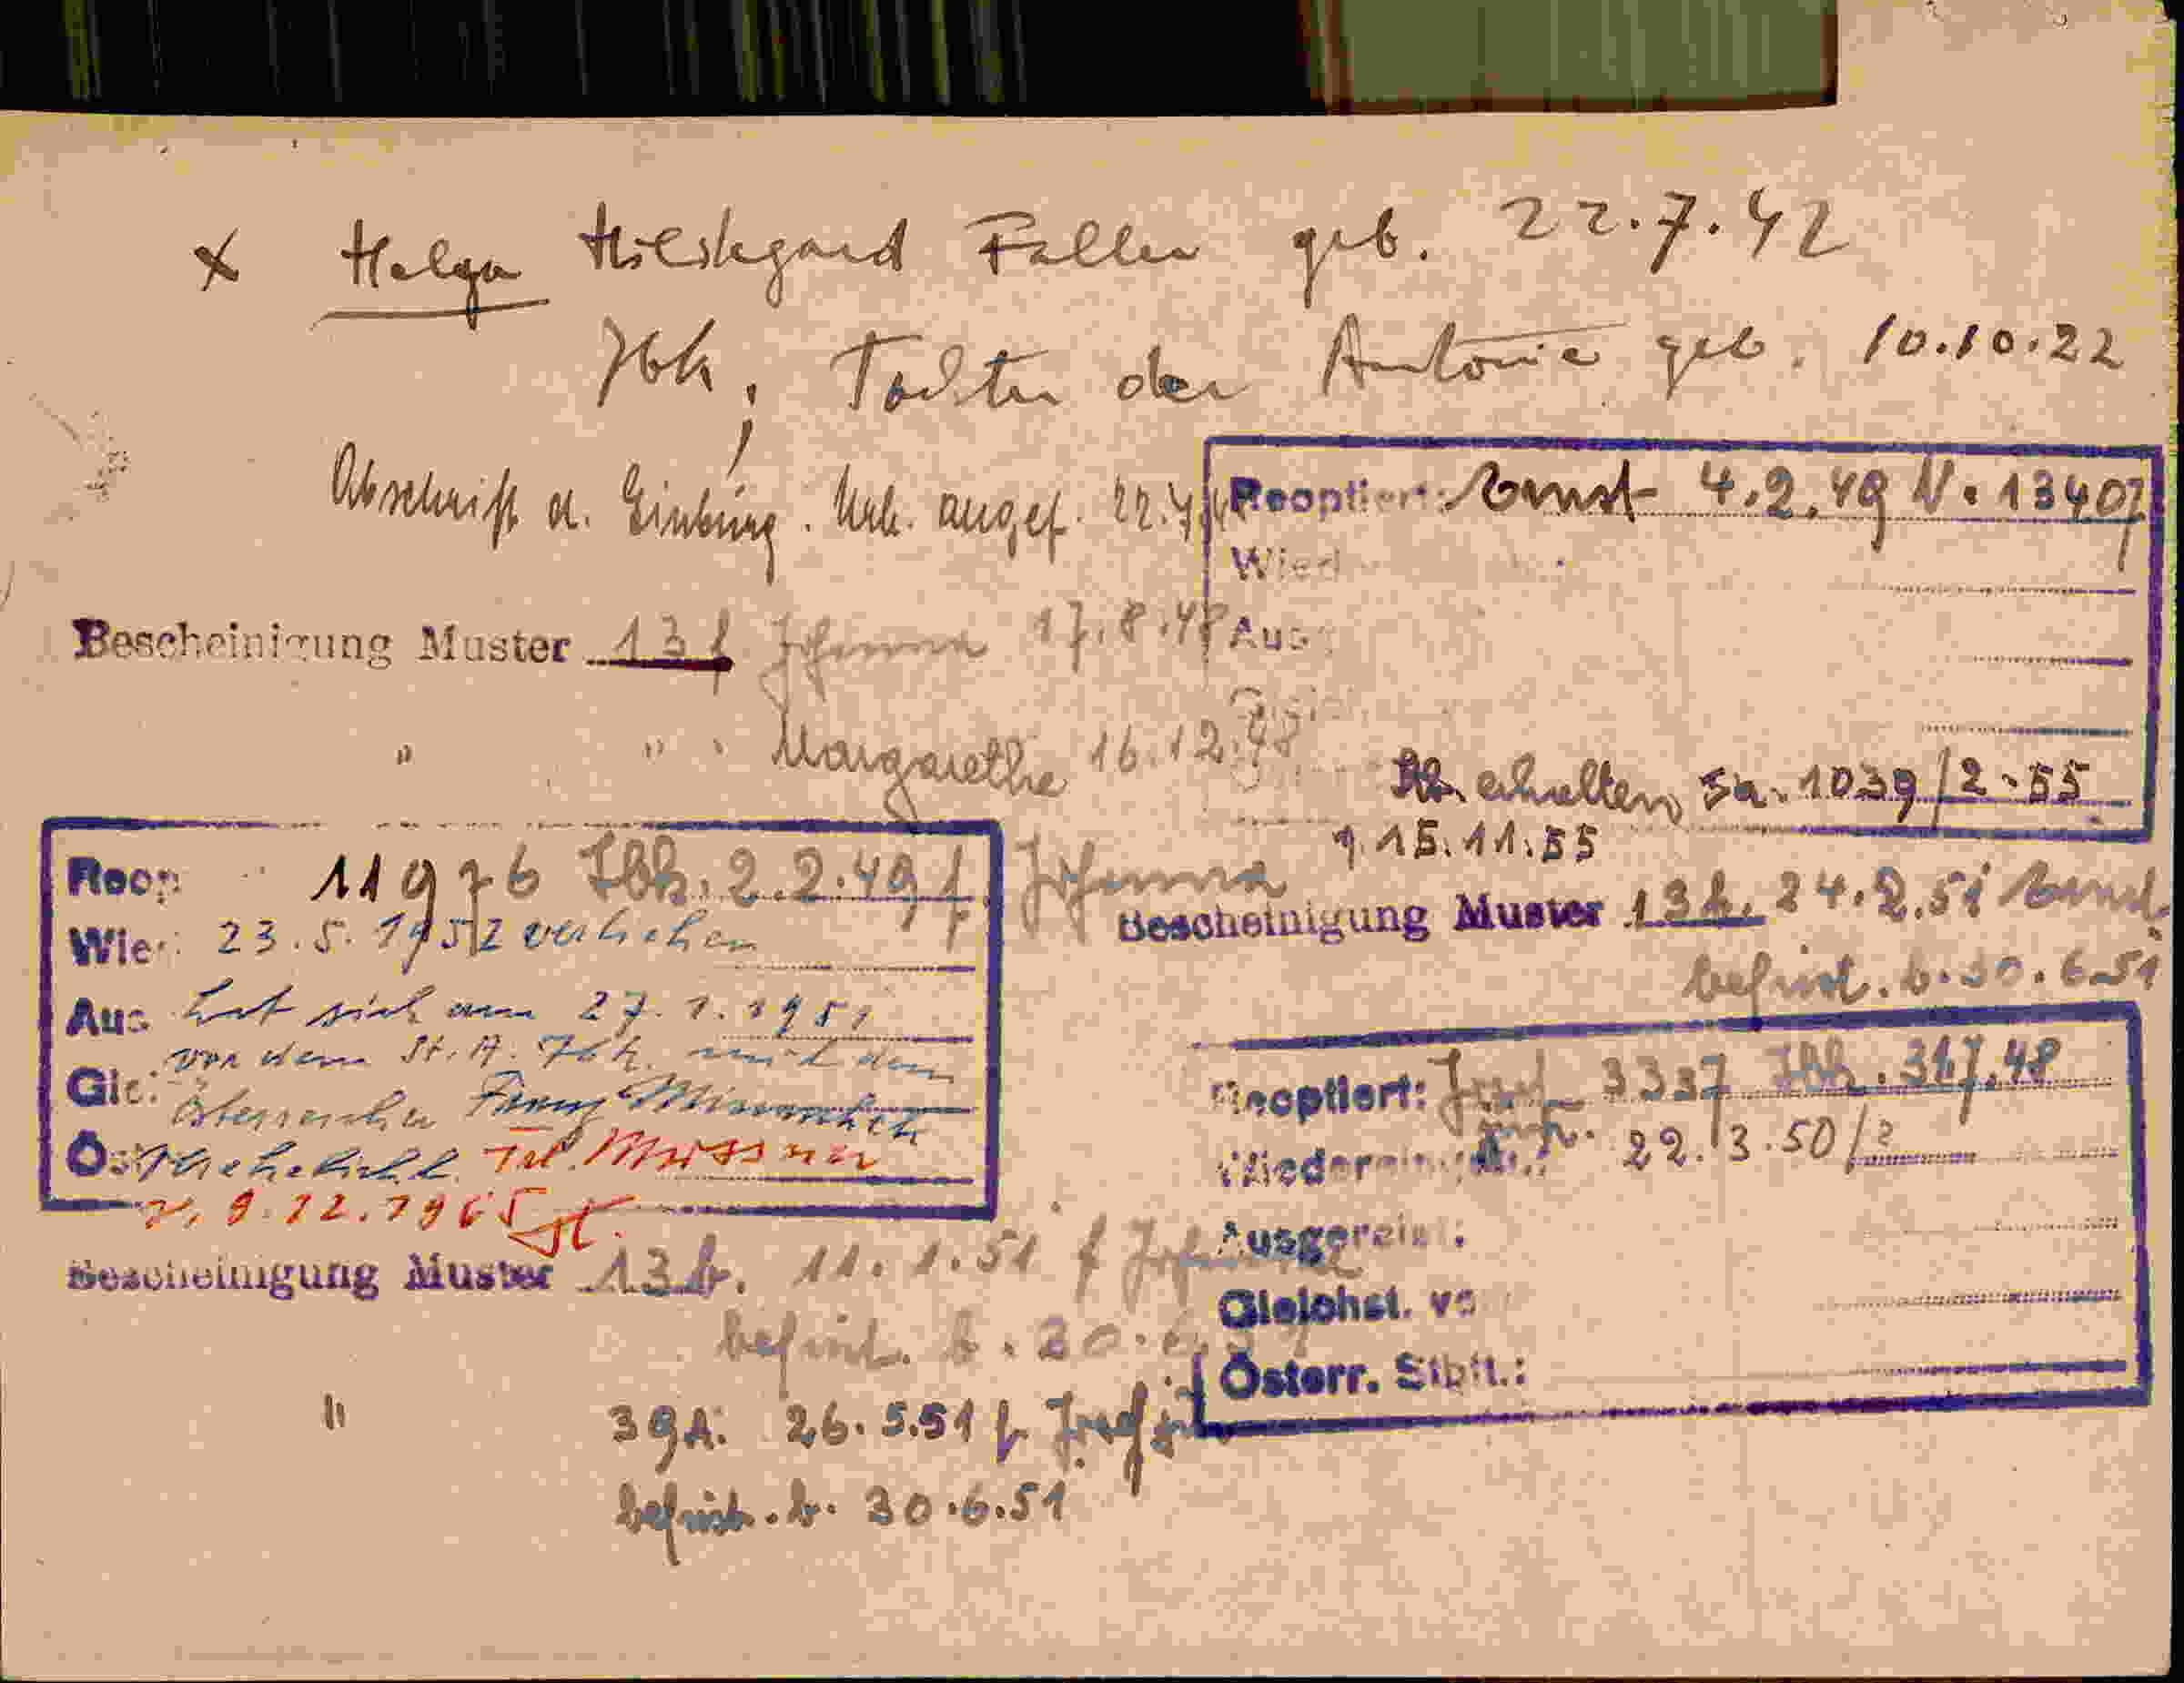 x Helga Hildegard Faller geb. 22.7.42
Ibk, Tochter der Antonie geb. 10.10.22
Abschrift d. Einbürg. Urk. angef. 22.4
Reoptiert: Ernst 4.2.49 N. 13407
Wied
Aus
Bescheinigung Muster 13 f Johanna 17.8.48
" " Margarethe 16.12.48
erhalten 1039/2-55
15.11.55
Reop 11976 Ibk. 2.2.49 f Johanna
Wie 23.5.1952 verliehen
Aus hat sich am 27.1.1951
vor dem St. A. Ibk. mit dem
Gle Österreicher Franz
Öst verehelicht. Tel.
9.12.1965
Bescheinigung Muster 13 b. 24.2.51 Ernst
befrist. b. 30.6.51
Reoptiert: Josef 3337 Ibk. 31.7.48
Wiederein 22.3.50/2
Ausgereist:
Gleichst. vo
Österr. Stbft.:
Bescheinigung Muster 13 b. 11.1.51 f Johanna
befrist. b. 30.6.51
" 39A. 26.5.51 f Josef
befrist. b. 30.6.51